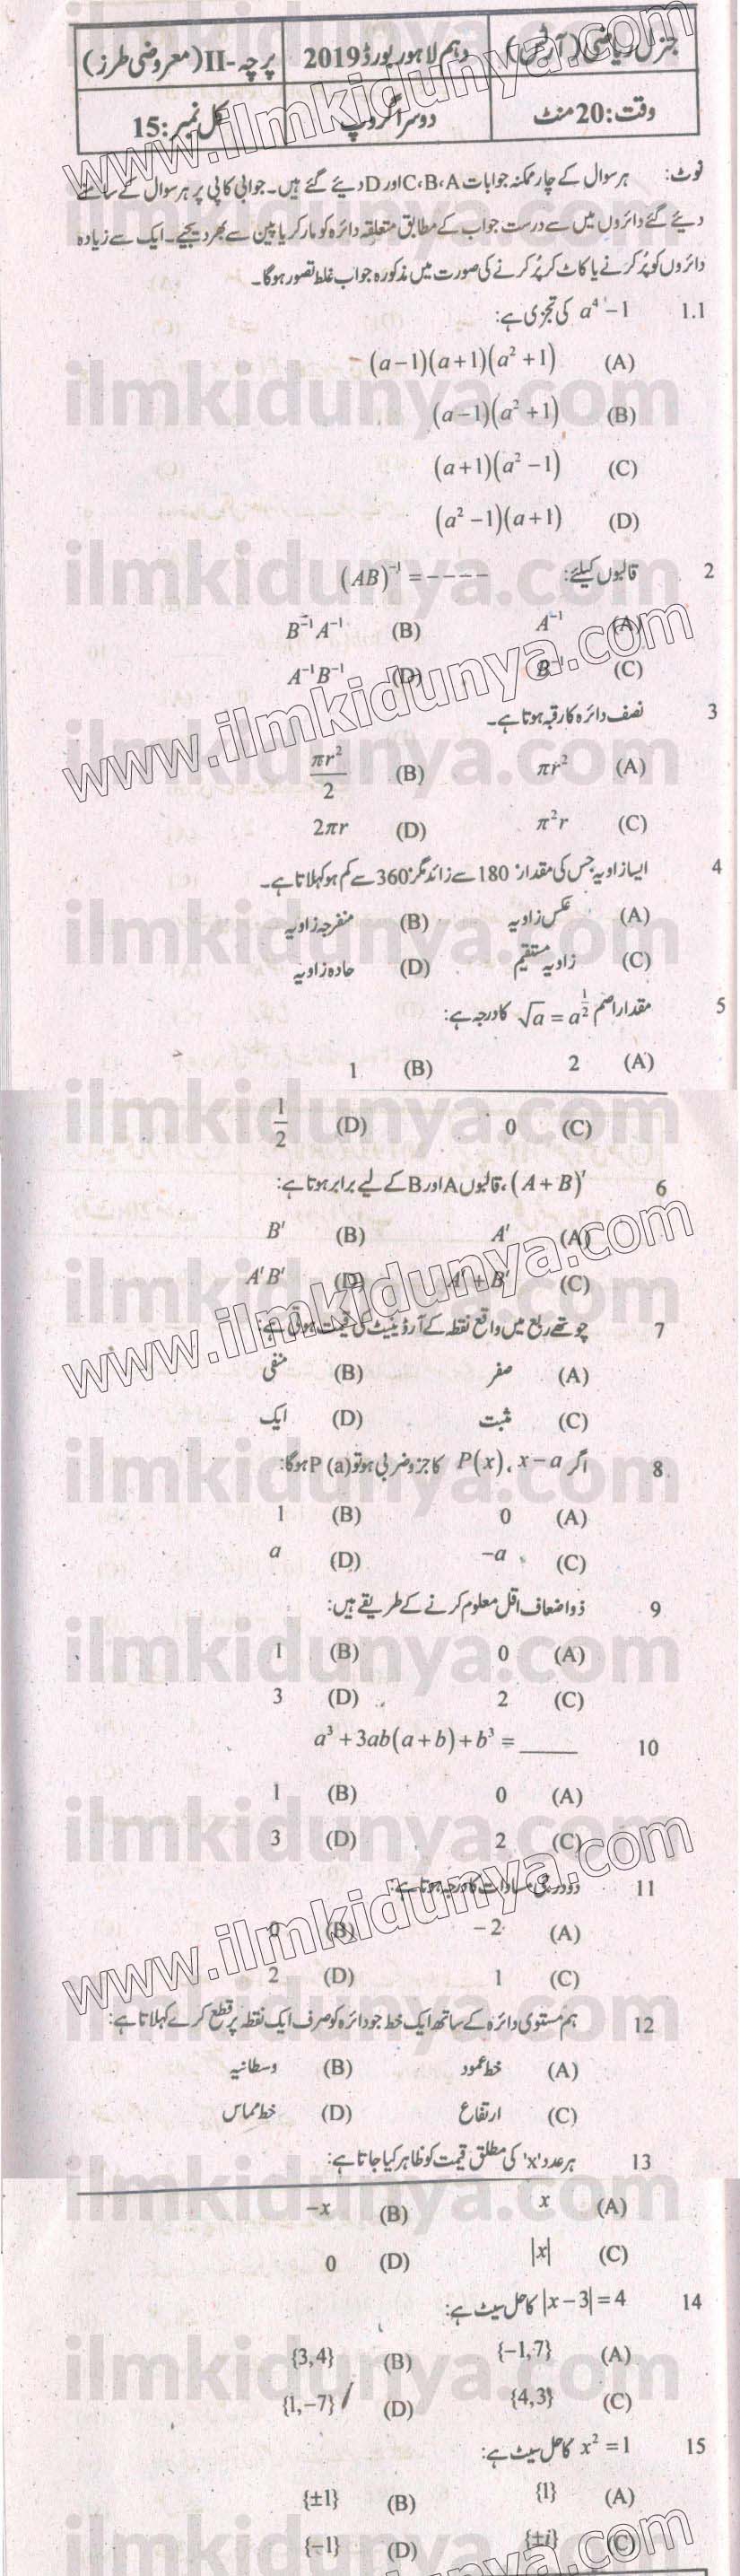 جنرل ریاضی (آرٹس) دہم لاہور بورڈ 2019 پرچہ -II (معروضی طرز)
وقت: 20 منٹ دوسرا گروپ کل نمبر: 15
نوٹ: ہر سوال کے چار ممکنہ جوابات C،B،A اور D دیئے گئے ہیں۔ جوابی کاپی پر ہر سوال کے سامنے
دیئے گئے دائروں میں سے درست جواب کے مطابق متعلقہ دائرہ کو مارکر یا پین سے بھر دیجیے۔ ایک سے زیادہ
دائروں کو پُر کرنے یا کاٹ کر پُر کرنے کی صورت میں مذکورہ جواب غلط تصور ہوگا۔
1.1 a⁴ −1 کی تجزی ہے:
(A) (a−1)(a+1)(a² +1)
(B) (a−1)(a² +1)
(C) (a+1)(a² −1)
(D) (a² −1)(a+1)
2 قالبوں کیلئے: (AB)⁻¹ = −−−−
(A) A⁻¹ (B) B⁻¹A⁻¹
(C) B⁻¹ (D) A⁻¹B⁻¹
3 نصف دائرہ کا رقبہ ہوتا ہے۔
(A) πr² (B) πr²/2
(C) π²r (D) 2πr
4 ایسا زاویہ جس کی مقدار 180° سے زائد مگر 360° سے کم ہو کہلاتا ہے۔
(A) عکس زاویہ (B) منفرجہ زاویہ
(C) زاویہ مستقیم (D) حادہ زاویہ
5 مقدار اصم √a = a^½ کا درجہ ہے:
(A) 2 (B) 1
(C) 0 (D) 1/2
6 (A + B)′، قالبوں A اور B کے لیے برابر ہوتا ہے:
(A) A′ (B) B′
(C) A′ + B′ (D) A′B′
7 چوتھے ربع میں واقع نقطہ کے آرڈینیٹ کی قیمت ہوتی ہے:
(A) صفر (B) منفی
(C) مثبت (D) ایک
8 اگر x − a، P(x) کا جزو ضربی ہو تو P (a) ہوگا:
(A) 0 (B) 1
(C) −a (D) a
9 ذواضعاف اقل معلوم کرنے کے طریقے ہیں:
(A) 0 (B) 1
(C) 2 (D) 3
10 a³ +3ab(a+b)+b³ = _____
(A) 0 (B) 1
(C) 2 (D) 3
11 دو درجی مساوات کا درجہ ہوتا ہے:
(A) −2 (B) 0
(C) 1 (D) 2
12 ہم مستوی دائرہ کے ساتھ ایک خط جو دائرہ کو صرف ایک نقطہ پر قطع کرے کہلاتا ہے:
(A) خط عمود (B) وسطانیہ
(C) ارتفاع (D) خط مماس
13 ہر عدد 'x' کی مطلق قیمت کو ظاہر کیا جاتا ہے:
(A) x (B) −x
(C) |x| (D) 0
14 |x−3|=4 کا حل سیٹ ہے:
(A) {−1,7} (B) {3,4}
(C) {4,3} (D) {1,−7}
15 x² =1 کا حل سیٹ ہے:
(A) {1} (B) {±1}
(C) {±i} (D) {−1}
www.ilmkidunya.com
ilmkidunya.com